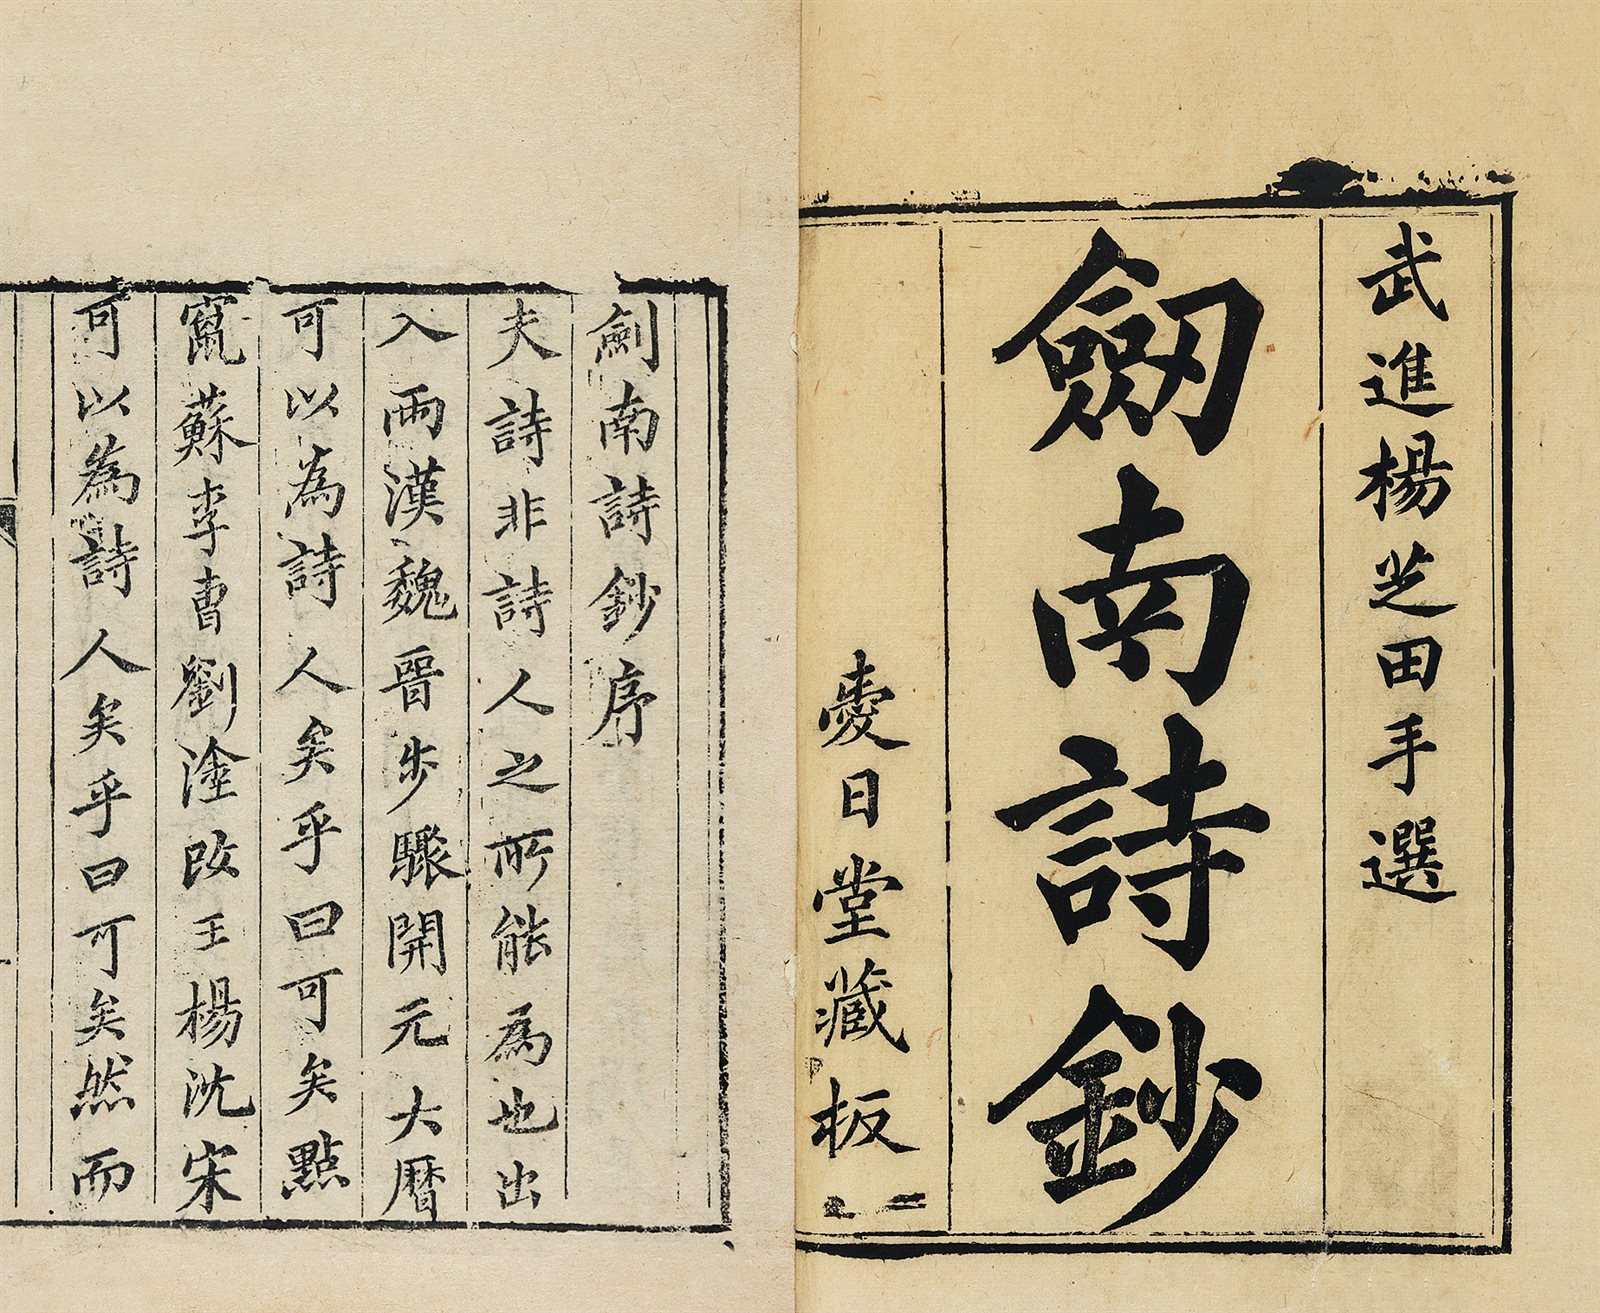 武進楊芝田手選
劒南詩鈔
愛日堂藏板
劍南詩鈔序
夫詩非詩人之所能為也出
入兩漢魏晉步驟開元大曆
可以為詩人矣乎曰可矣點
竄蘇李曹劉塗改王楊沈宋
可以為詩人矣乎曰可矣然而